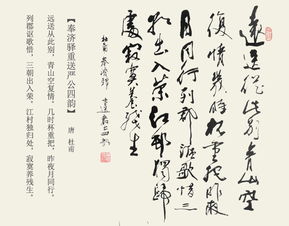 遠送從此别青山空
復情幾時杯重把昨夜
月同行列郡謳歌惜三
朝出入榮江邨獨歸
處寂寞養殘生
杜甫
【奉济驿重送严公四韵】
唐 杜甫
远送从此别，青山空复情。几时杯重把，昨夜月同行。
列郡讴歌惜，三朝出入荣。江村独归处，寂寞养残生。